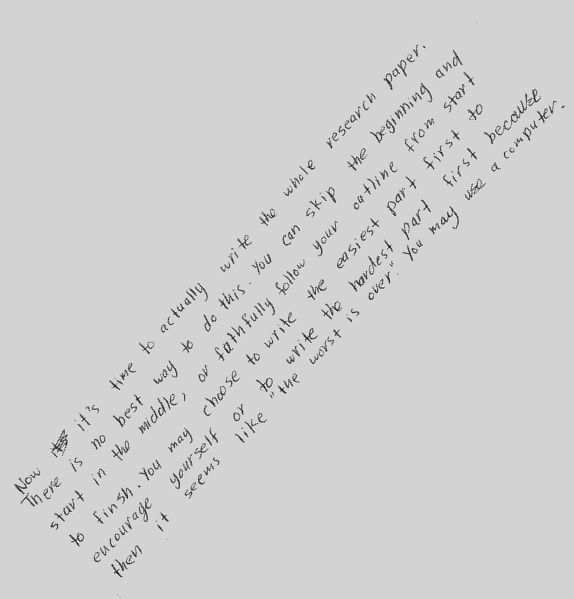 Now it's time to actually write the whole research paper.
There is no best way to do this. You can skip the beginning and
start in the middle, or faithfully follow your outline from start
to finsh. You may choose to write the easiest part first to
encourage yourself or to write the hardest part first because
then it seems like "the worst is over." You may use a computer.